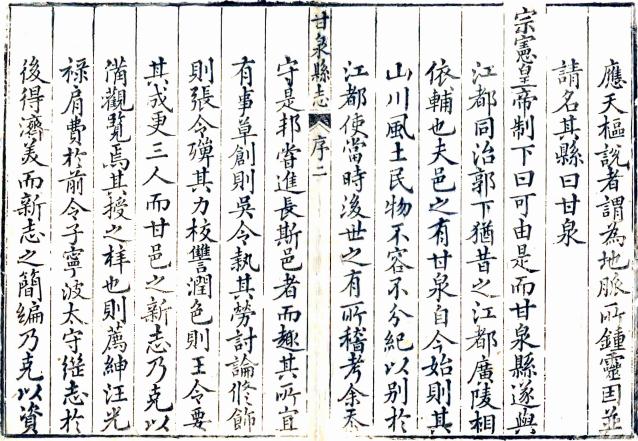 應天樞說者謂為地脈所鍾靈因並
請名其縣曰甘泉
宗憲皇帝制下曰可由是而甘泉縣遂與
江都同治郭下猶昔之江都廣陵相
依輔也夫邑之有甘泉自今始則其
山川風土民物不容不分紀以别於
江都使當時後世之有所稽考余忝
甘泉縣志 序二
守是邦嘗進長斯邑者而趣其所宜
有事草創則吳令執其勞討論修飾
則張令殫其力校讐潤色則王令要
其成更三人而甘邑之新志乃克以
備觀覽焉其授之梓也則薦紳汪光
祿肩費於前令子寧波太守繼志於
後得濟美而新志之簡編乃克以資